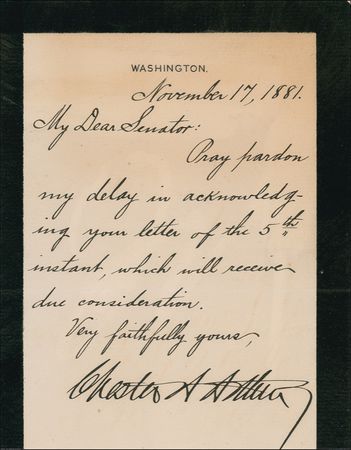 WASHINGTON.
November 17, 1881.
My Dear Senator:
Pray pardon
my delay in acknowledg-
ing your letter of the 5th
instant, which will receive
due consideration.
Very faithfully yours,
Chester A Arthur